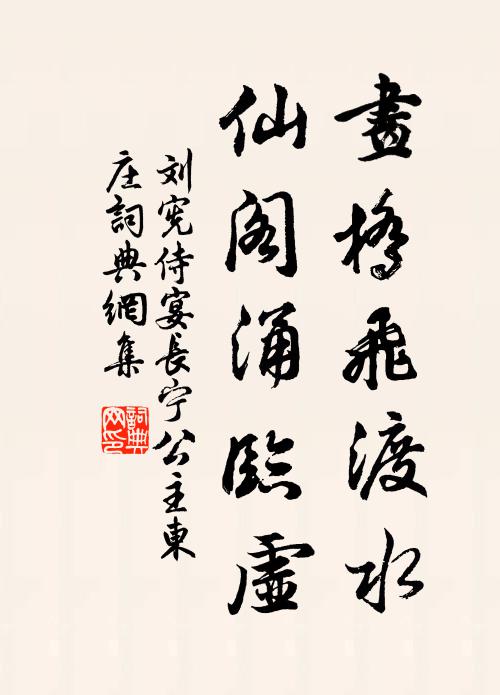 畫橋飛渡水
仙阁涌臨虛
刘宪侍宴長宁公主東
庄詞典網集
詞典
网印